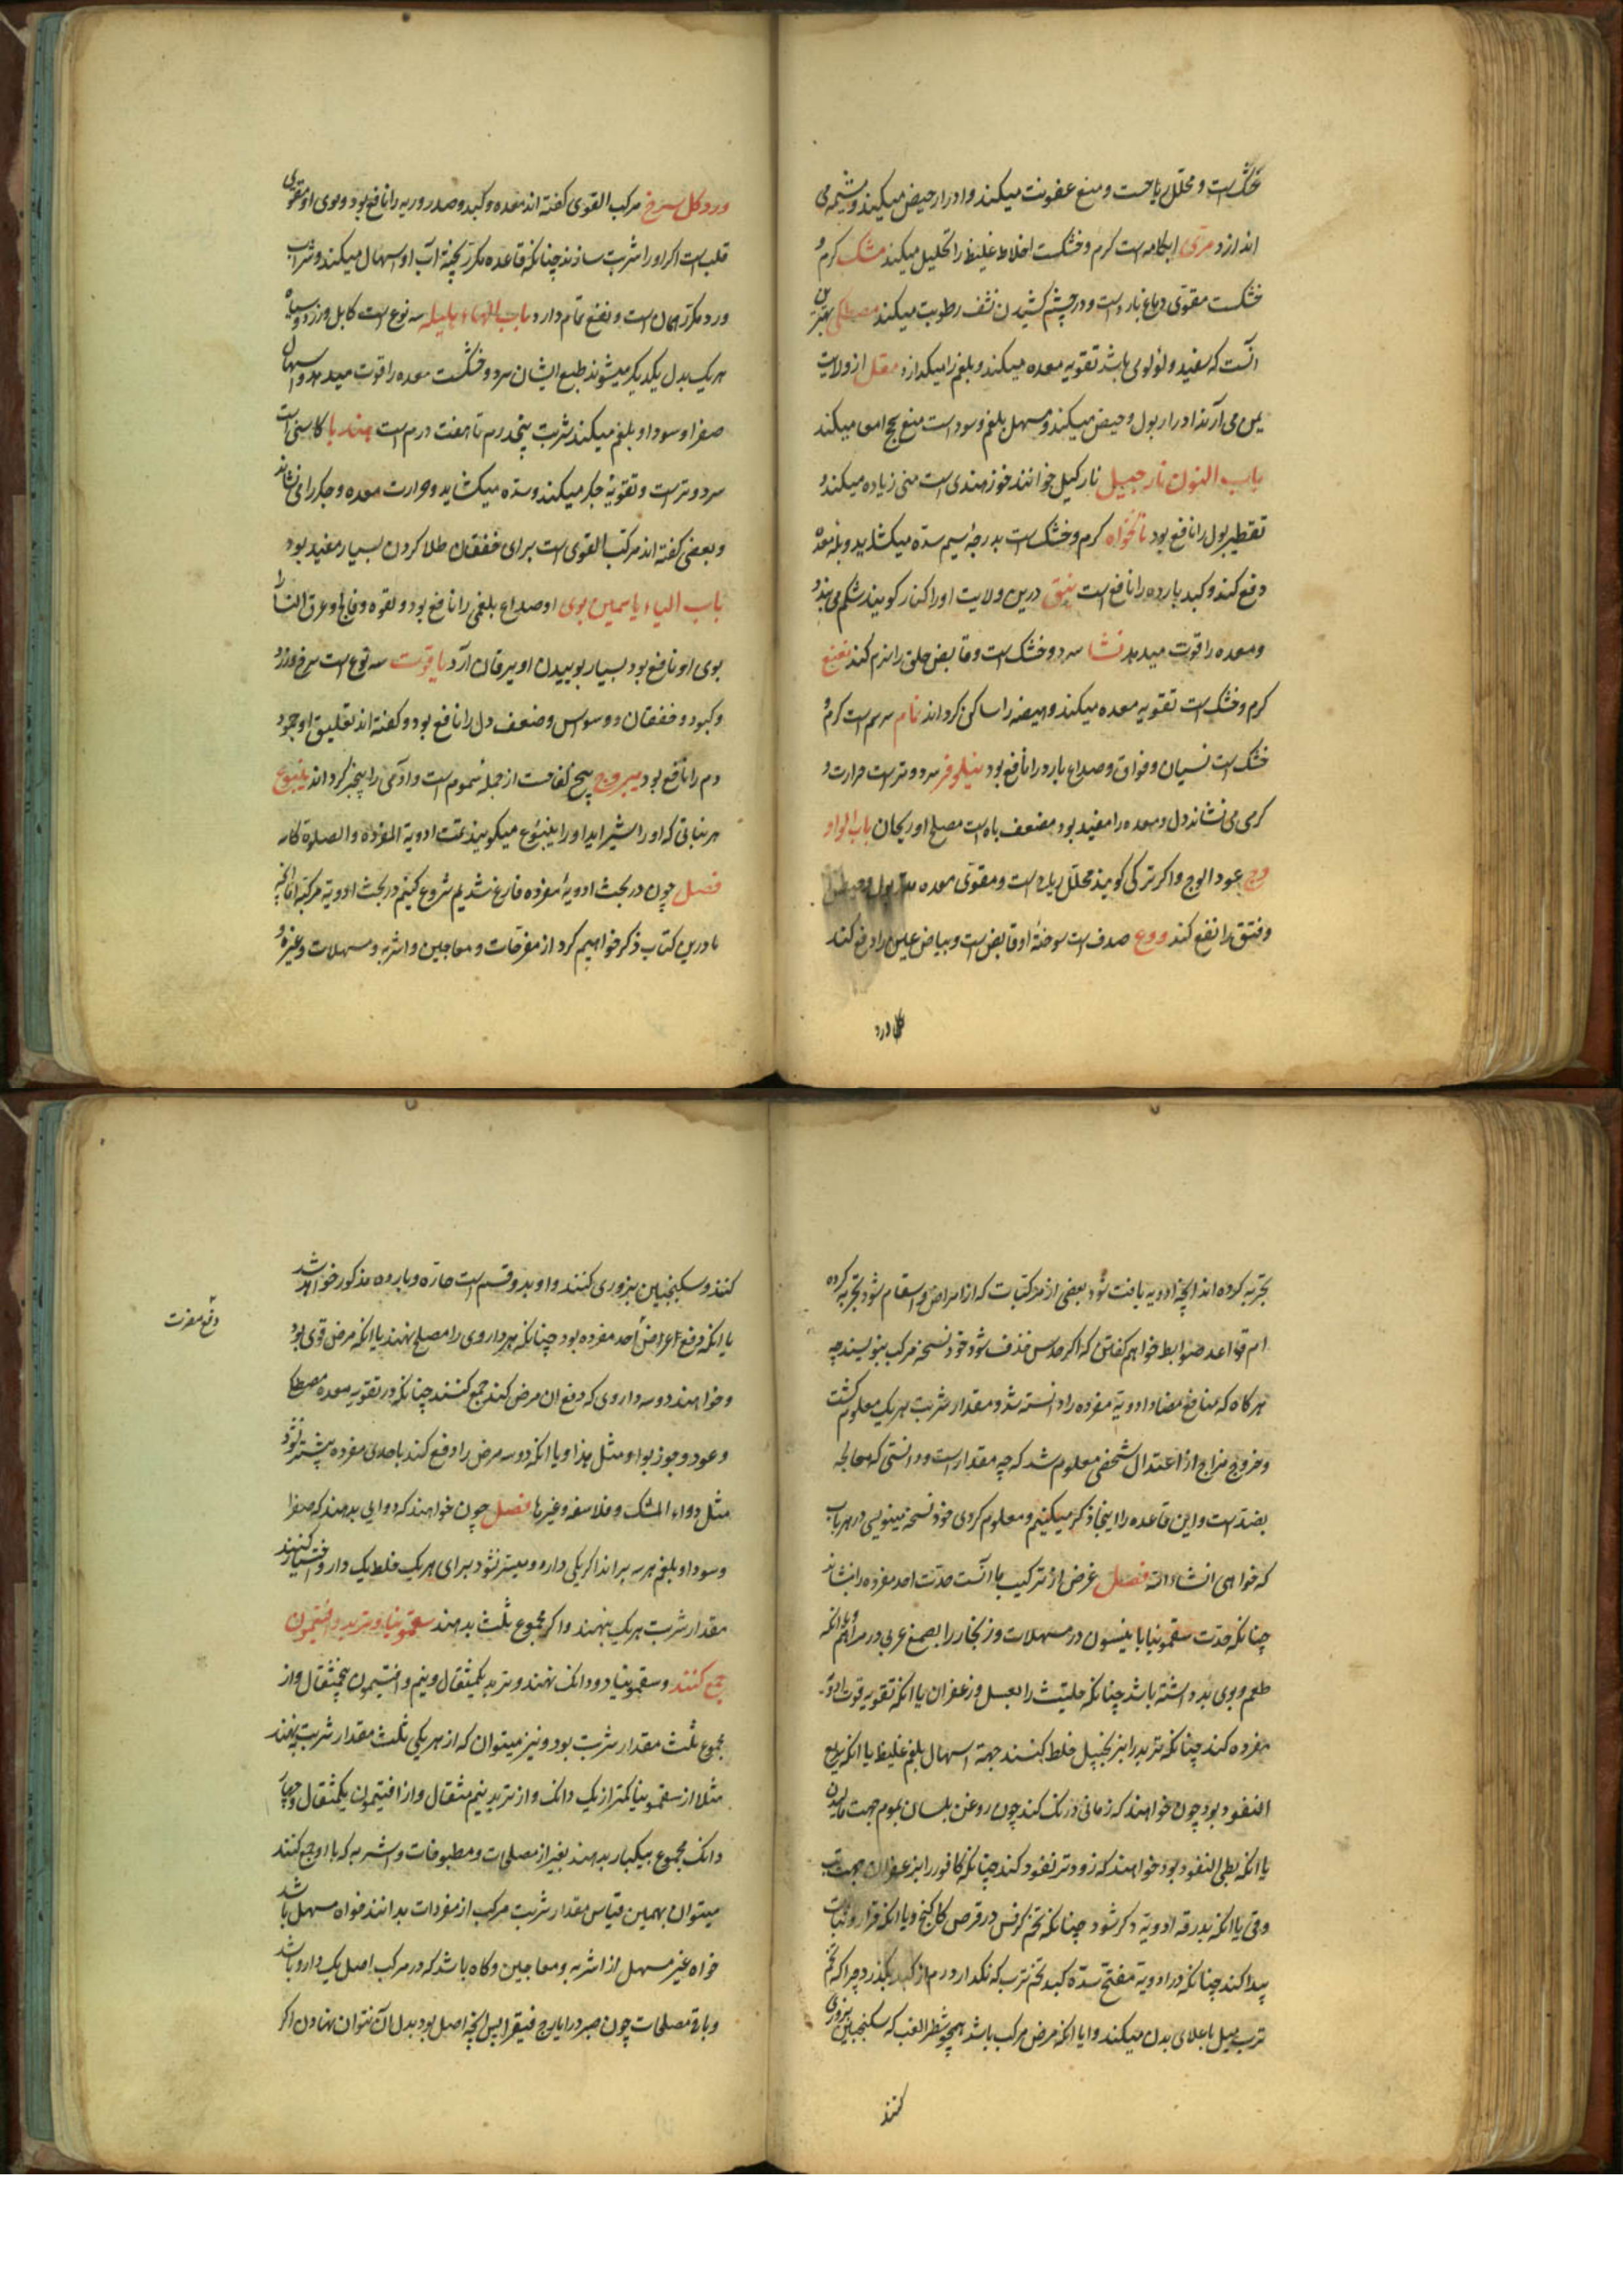 خشکست و محلل ریاحست و منع عفونت میکند و ادرار حیض میکند و مشیمه می
اندازد مرّی ابکامه است کرم و خشکست اخلاط غلیظ را تحلیل میکند مشک کرم و
خشکست مقوّی دماغ بارد است و در چشم کشیدن نشف رطوبت میکند مصطکی بهترین
آنست که سفید و لؤلوی باشد تقویه معده میکند و بلغم را میکدازد مقل از ولایت
یمن می آرند ادرار بول و حیض میکند و مسهل بلغم و سوداست منع سحج امعا میکند
باب النون نارجیل نارکیل خوانند خوز هندی است منی زیاده میکند و
تقطیر بول را نافع بود نانخواه کرم و خشک است بدرجهٔ سیم سدّه میکشاید و بله معده
دفع کند و کبد بارده را نافع است نبق درین ولایت او را کنار کویند شکم می بندد
و معده را قوت میدهد نشا سرد و خشک است و قابض حلق را نرم کند نعنع
کرم و خشک است تقویه معده میکند و هیضه را ساکن کرداند نمام سرسم است کرم و
خشک است نسیان و فواق و صداع بارد را نافع بود نیلوفر سرد و ترست حرارت و
کرمی می نشاند دل و معده را مفید بود مضعف باه است مصلح او ریحان باب الواو
وج عود الوج و اکر ترکی کویند محلل ریاح است و مقوّی معده مدر بول و حیض
و فتق را نفع کند ودع صدف است سوختهٔ او قابض است و بیاض عین را دفع کند
کل ورد
ورد کل سرخ مرکب القوی کفته اند معده و کبد و صدر و ریه را نافع بود و بوی او مقوّی
قلب است اکر او را شربت سازند چنانکه قاعده مکرر پخته آب او اسهال میکند و شراب
ورد مکرّر همان است و نفع تمام دارد باب الهاء هلیله سه نوع است کابلی و زرد و سیاه
هر یک بدل یکدیکر میشوند طبع ایشان سرد و خشکست معده را قوت میدهد و اسهال
صفرا و سودا و بلغم میکند شربت پنجدرم تا هفت درم است هندبا کاسنی است
سرد و ترست و تقویهٔ جکر میکند و سدّه میکشاید و حرارت معده و جکر را می نشاند
و بعضی کفته اند مرکب القوی است برای خفقان طلا کردن بسیار مفید بود
باب الیاء یاسمین بوی او صداع بلغمی را نافع بود و لقوه و فالج و عرق النسا را
بوی او نافع بود بسیار بوییدن او یرقان آرد یاقوت سه نوع است سرخ و زرد
و کبود و خفقان و وسواس و ضعف دل را نافع بود و کفته اند تعلیق او جمود
دم را نافع بود یبروج بیخ لفاحست از جمله سموم است و آدمی را بیخبر کرداند یتیوع
هر نباتی که او را شیر آید او را یتیوع میکویند تمت ادویة المفرده و الصلوة کامه
فصل چون در بحث ادویهٔ مفرده فارغ شدیم شروع کنیم در بحث ادویهٔ مرکبه اما آنچه
ما درین کتاب ذکر خواهیم کرد از مفرحات و معاجین و اشربه و مسهلات و غیره و
بتجربه کرده اند آنچه ادویه یافت شود بعضی از مرکبات که از امراض و اسقام شود بتجربه کرده
ام قواعد ضوابط خواهم کفتن که اکر حدس حذف شود خود نسخه مرکب بنویسند چه
هر کاه که منافع مضاد ادویهٔ مفرده را دانسته شد و مقدار شربت هر یک معلوم کشت
و خروج مزاج از اعتدال شخصی معلوم شد که چه مقدار است و دانستی که معالجه
بضدست و این قاعده را اینجا ذکر میکنیم و معلوم کردی خود نسخه مینویسی در هر باب
که خواهی انشاءالله فصل غرض از ترکیب یا آنست حدّت احد مفرده را بنشاند
چنانکه حدّت سقمونیا با نیسون در مسهلات و زنجار را بصمغ عربی در مراهم و یا آنکه
طعم و بوی بد داشته باشد چنانکه حلتیت را بعسل و زعفران یا آنکه تقویه قوت ادویهٔ
مفرده کند چنانکه تربد را بزنجبیل خلط کنند جهة اسهال بلغم غلیظ یا آنکه سریع
النفوذ بود چون خواهند که زمانی درنک کند چون روغن بلسان بموم جهت مالیدن
یا آنکه بطی النفوذ بود خواهند که زودتر نفوذ کند چنانکه کافور را بزعفران جهت تب
دقی یا آنکه بدرقه ادویهٔ دکر شود چنانکه تخم کرفس در قرص کاکنج و یا آنکه قرار و ثبات
پیدا کند چنانکه در ادویهٔ مفتح سدّهٔ کبد تخم ترب که نکدارد هم از کبد بکذرد چرا که تخم
ترب میل باعلای بدن میکند و ایا آنکه مرض مرکب باشد همچو شطر الغب که سکنجبین بزوری
کنند
کنند و سکنجبین بزوری کنند و او بد و قسم است حارّه و بارده مذکور خواهد شد
یا آنکه دفع اعراض احد مفرده بود چنانکه هر داروی را مصلح نهند یا آنکه مرض قوی بود
دفع مضرت
و خواهند دو سه داروی که دفع ان مرض کند جمع کنند چنانکه در تقویه معده مصطکی
و عود و جوز بوا و مثل هذا و یا آنکه دو سه مرض را دفع کند باحدی مفرده بیشتر نشود
مثل دواء المشک و فلاسفه و غیرها فصل چون خواهند که دوایی بدهند که صفرا
و سودا و بلغم هر سه براند اکر یکی دارو میسّر نشود برای هر یک خلط یک دارو اختیار کنند
مقدار شربت هر یک بنهند و اکر مجموع ثلث بدهند سقمونیا و تربد و افتیمون
جمع کنند و سقمونیا دو دانک نهند و تربد یکمثقال و نیم و افتیمون پنجمثقال و از
مجموع ثلث مقدار شربت بود و نیز میتوان که از هر یکی ثلث مقدار شربت بنهند
مثلا از سقمونیا کمتر از یک دانک و از تربد نیم مثقال و از افتیمون یکمثقال و چهار
دانک مجموع بیکبار بدهند بغیر از مصلحات و مطبوخات و اشربه که با او جمع کنند
میتوان بهمین قیاس مقدار شربت مرکب از مفردات بدانند خواه مسهل باشد
خواه غیر مسهل از اشربه و معاجین و کاه باشد که در مرکب اصل یک دارو باشد
و باقی مصلحات چون صبر در ایارج فیقرا پس آنچه اصل بود بدل آن نتوان نهادن اکر